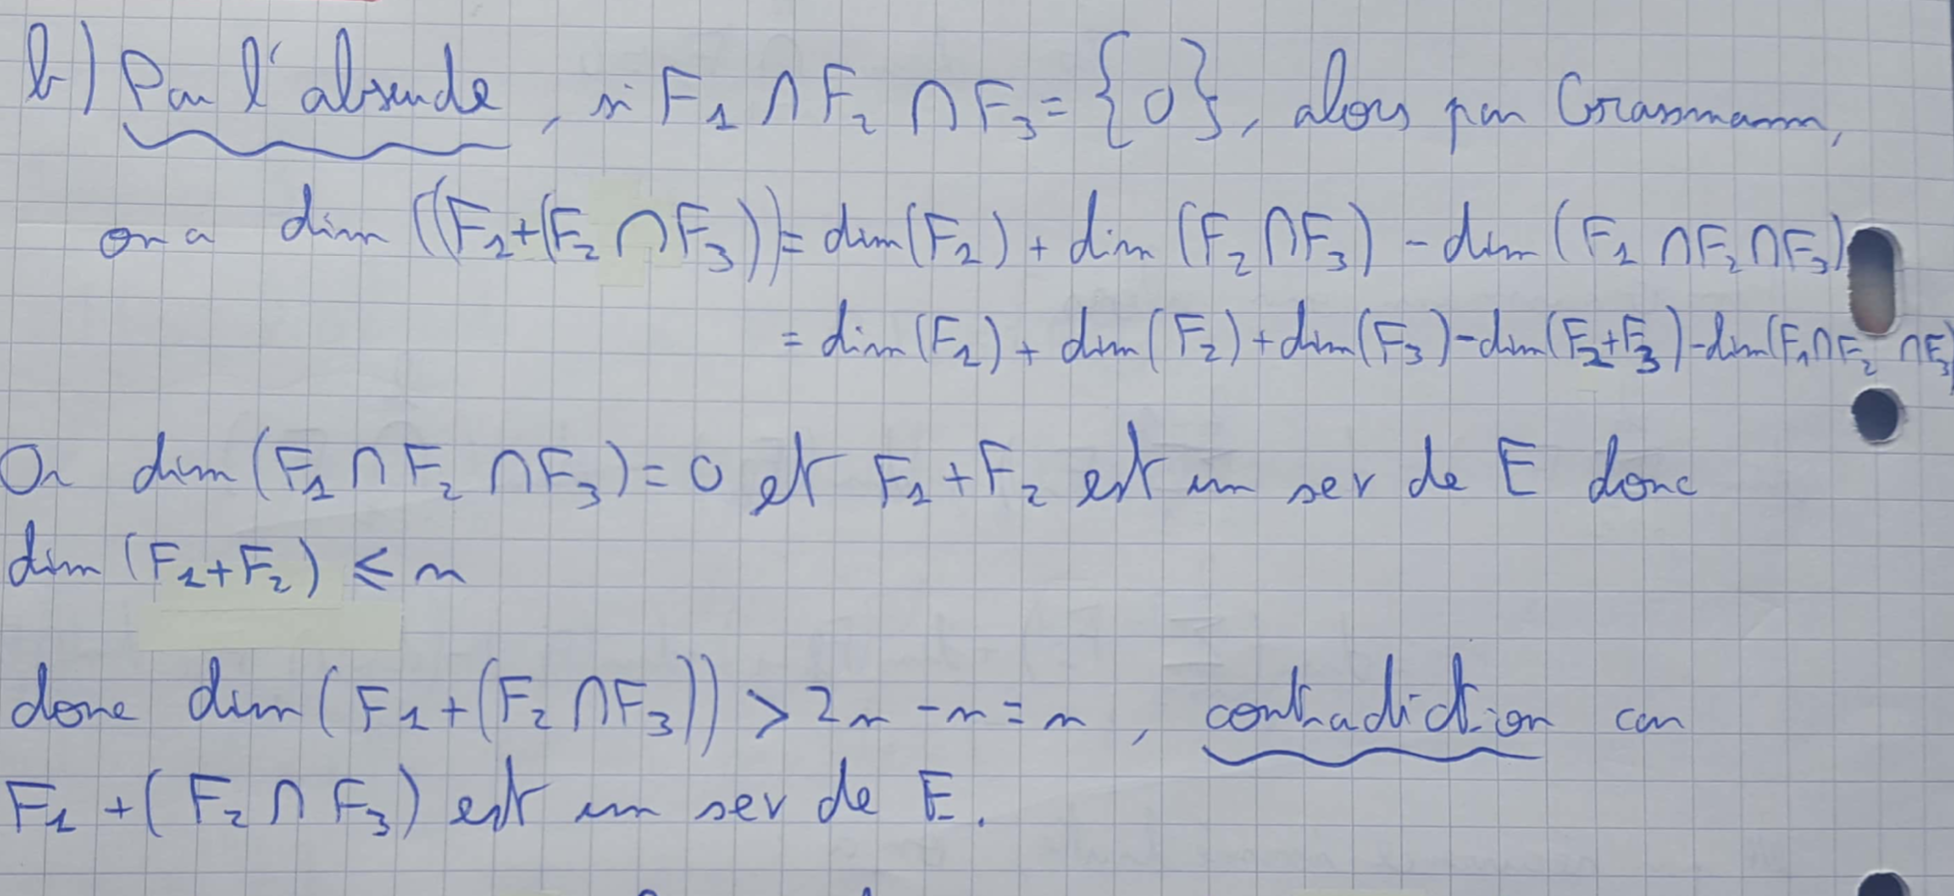 b) Par l'absurde, si F₁ ∩ F₂ ∩ F₃ = {0}, alors par Grassmann,
on a dim ((F₁+(F₂ ∩ F₃)) = dim(F₁) + dim (F₂ ∩ F₃) - dim (F₁ ∩ F₂ ∩ F₃)
= dim(F₁) + dim(F₂) + dim(F₃) - dim(F₂+F₃) - dim(F₁ ∩ F₂ ∩ F₃)
Or dim (F₁ ∩ F₂ ∩ F₃) = 0 et F₁+F₂ est un sev de E donc
dim (F₁+F₂) ≤ n
donc dim (F₁+(F₂ ∩ F₃)) > 2n - n = n, contradiction car
F₁ + (F₂ ∩ F₃) est un sev de E.